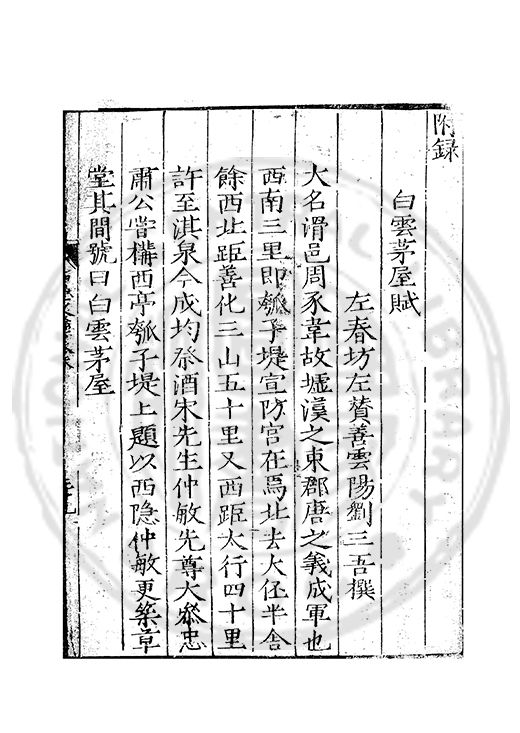 附録
白雲茅屋賦
左春坊左賛善雲陽劉三吾撰
大名滑邑周豕韋故墟漢之東郡唐之義成軍也
西南三里即瓠子堤宣防宫在焉北去大伾半舎
餘西北距善化三山五十里又西距太行四十里
許至淇泉今成均祭酒宋先生仲敏先尊大叅忠
肅公嘗搆西亭瓠子堤上題以西隐仲敏更築草
堂其間號曰白雲茅屋